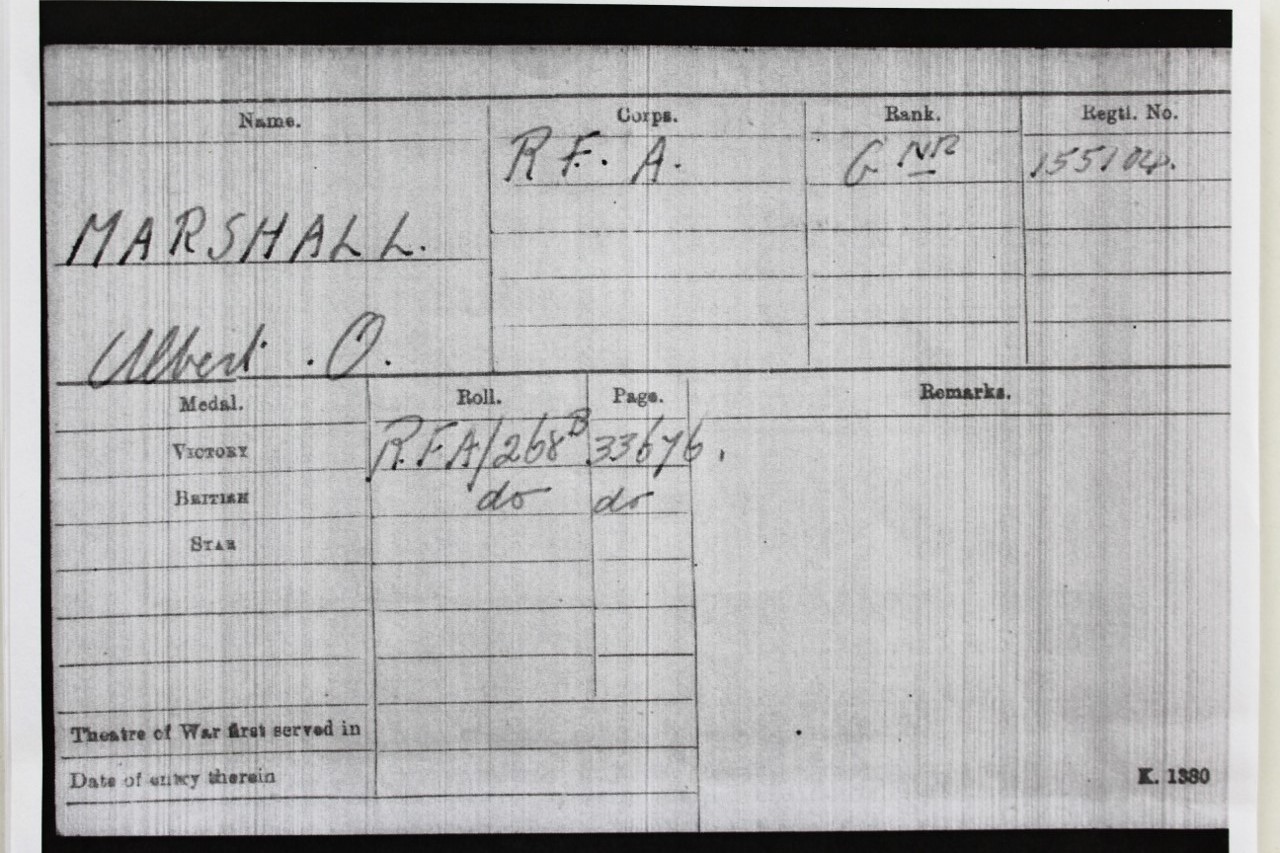 Name. Corps. Rank. Regtl. No.
R. F. A. GNR 155104.
MARSHALL.
Albert . O.
Medal. Roll. Page. Remarks.
VICTORY R.F.A/268B 33676.
BRITISH do do
STAR
Theatre of War first served in
Date of entry therein
K. 1380